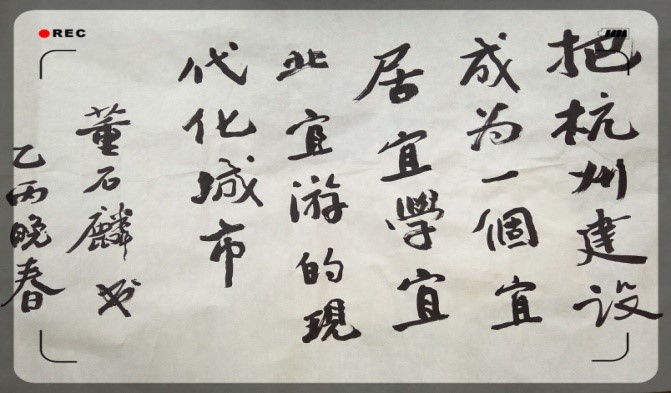 REC
把杭州建设
成为一個宜
居宜學宜
业宜游的現
代化城市
董石麟书
乙丙晚春